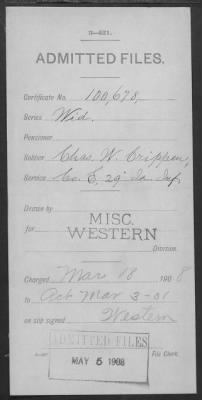 3—521.
ADMITTED FILES.
Certificate No. 100,678,
Series Wid.
Pensioner
Soldier Chas. W. Crippen,
Service Co. E, 29" Ia. Inf.
Drawn by
for MISC. WESTERN
Division.
Charged Mar 18 1908
to Act Mar 3-01
on slip signed Western
File Clerk.
ADMITTED FILES
MAY 5 1908